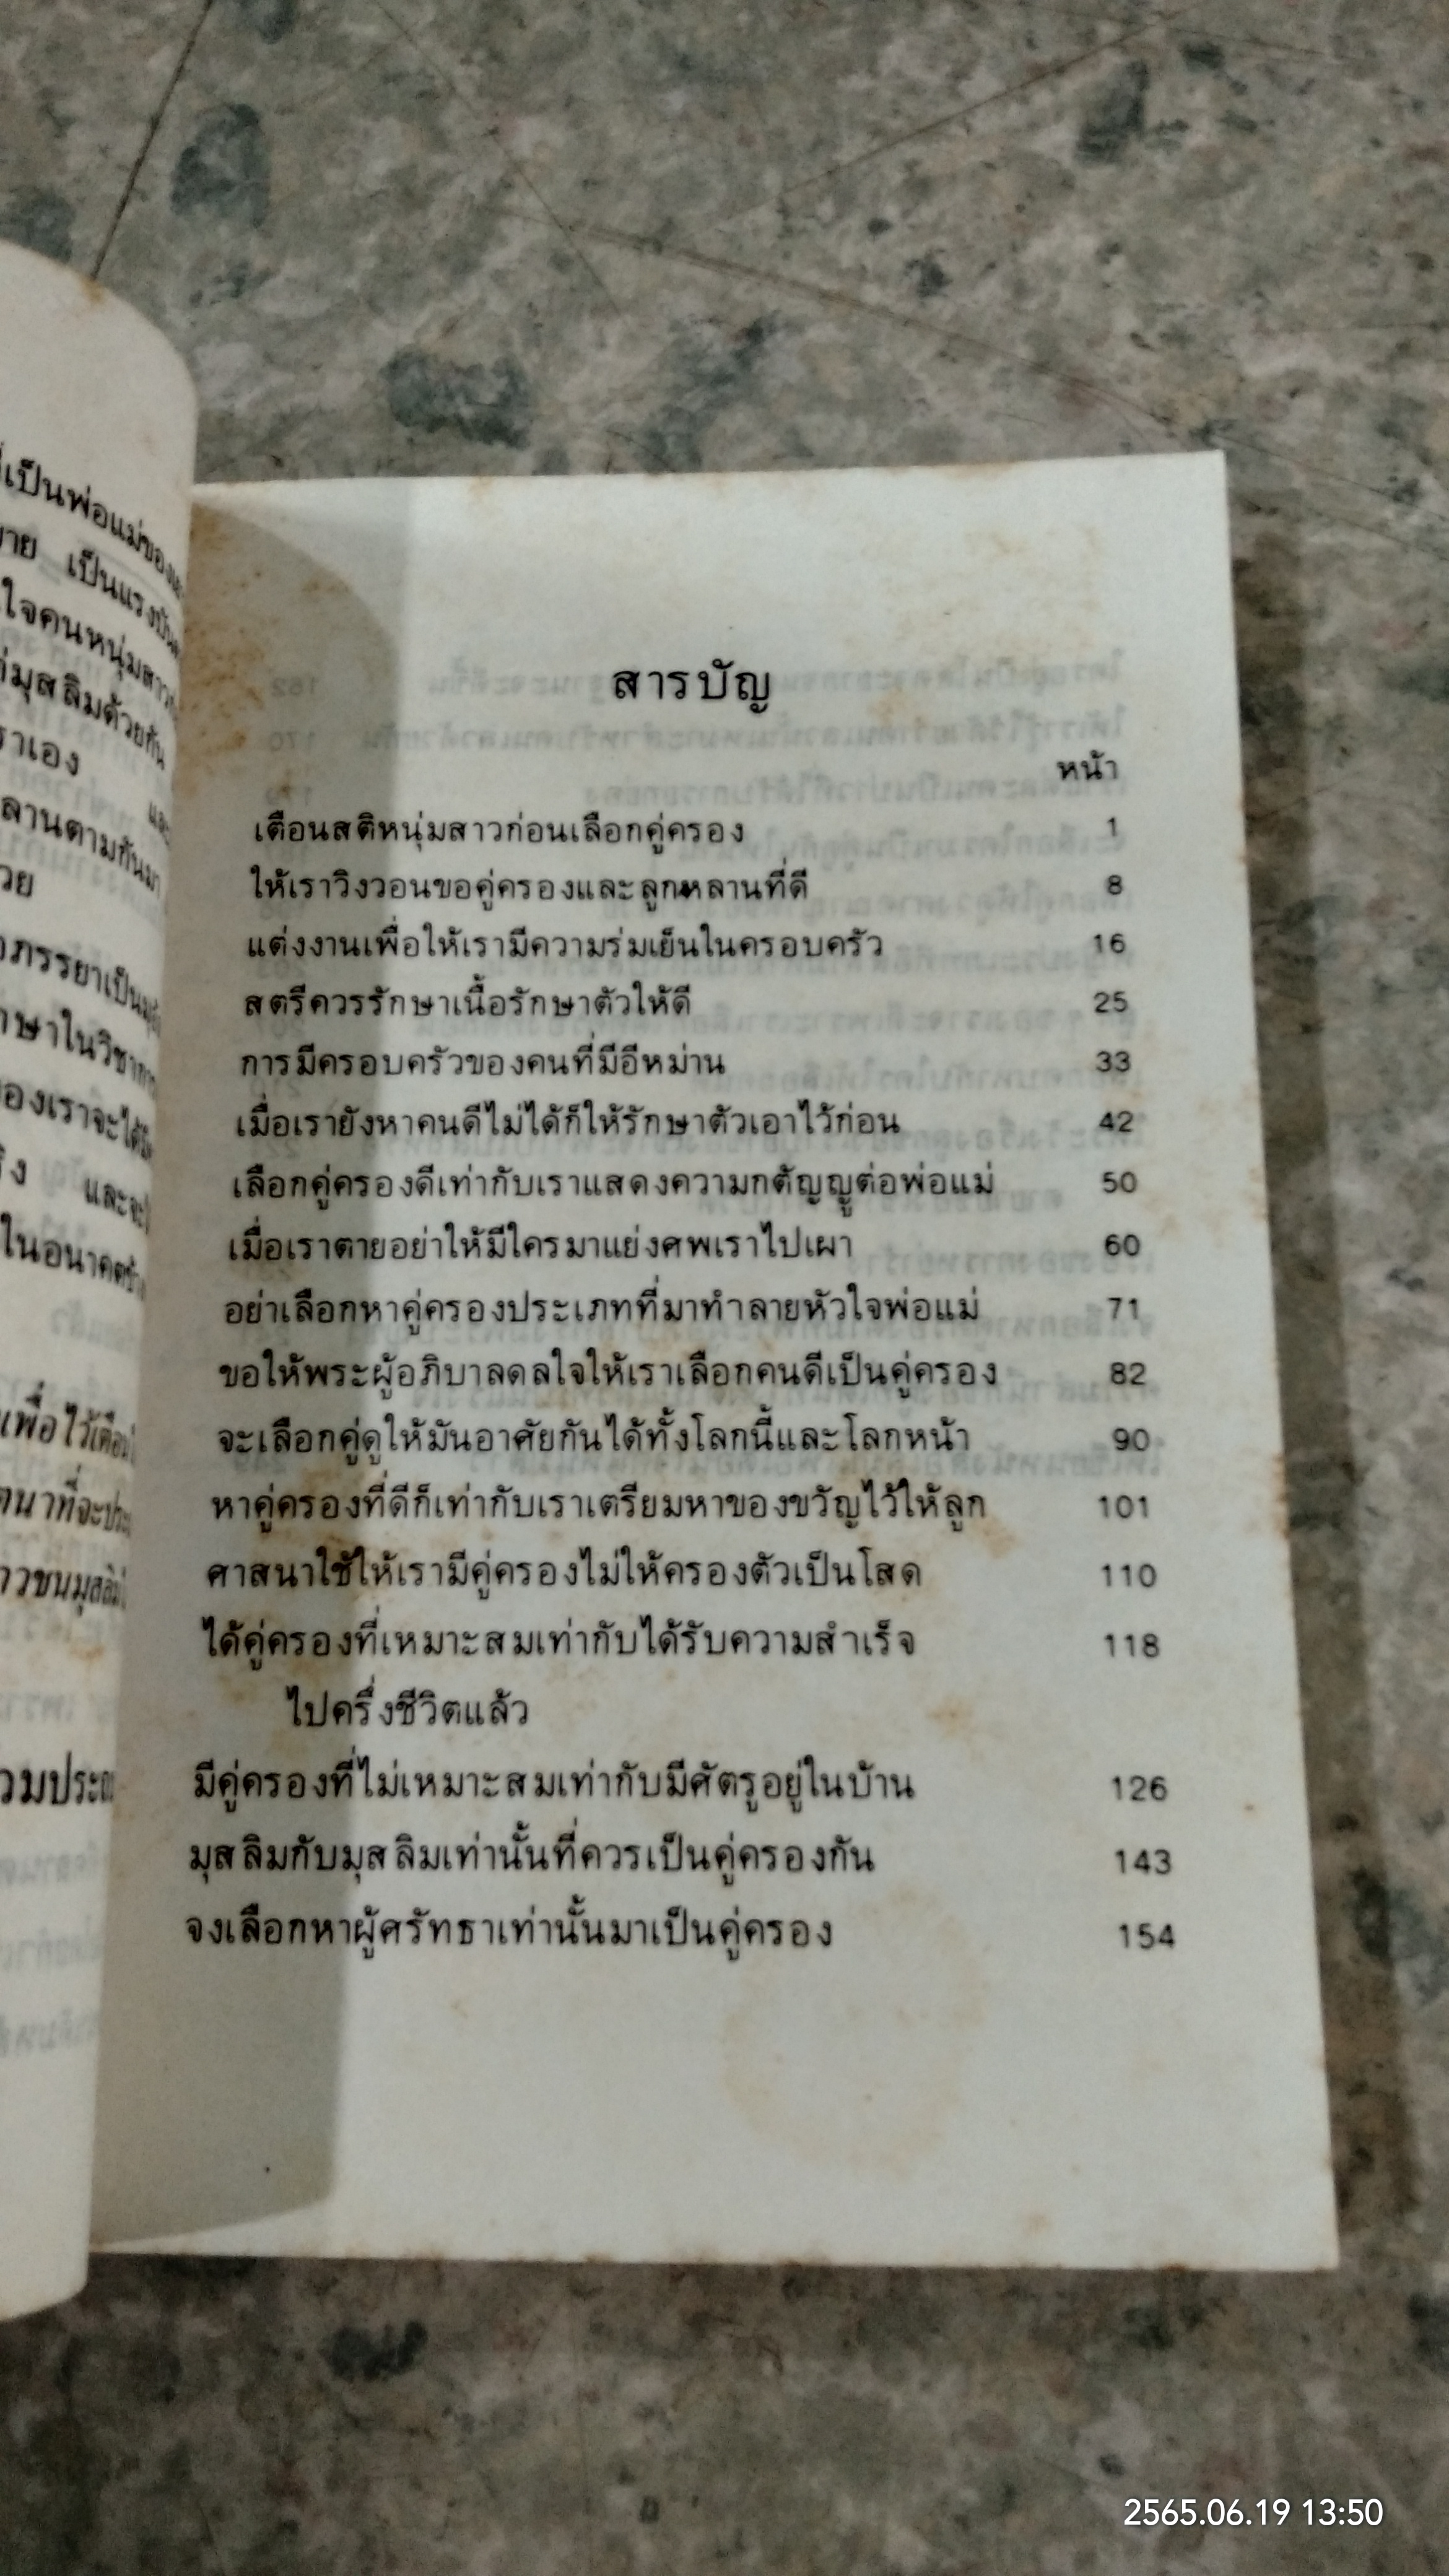 สารบัญ
หน้า
เตือนสติหนุ่มสาวก่อนเลือกคู่ครอง 1
ให้เราวิงวอนขอคู่ครองและลูกหลานที่ดี 8
แต่งงานเพื่อให้เรามีความร่มเย็นในครอบครัว 16
สตรีควรรักษาเนื้อรักษาตัวให้ดี 25
การมีครอบครัวของคนที่มีอีหม่าน 33
เมื่อเรายังหาคนดีไม่ได้ก็ให้รักษาตัวเอาไว้ก่อน 42
เลือกคู่ครองดีเท่ากับเราแสดงความกตัญญูต่อพ่อแม่ 50
เมื่อเราตายอย่าให้มีใครมาแย่งศพเราไปเผา 60
อย่าเลือกหาคู่ครองประเภทที่มาทำลายหัวใจพ่อแม่ 71
ขอให้พระผู้อภิบาลดลใจให้เราเลือกคนดีเป็นคู่ครอง 82
จะเลือกคู่ดูให้มันอาศัยกันได้ทั้งโลกนี้และโลกหน้า 90
หาคู่ครองที่ดีก็เท่ากับเราเตรียมหาของขวัญไว้ให้ลูก 101
ศาสนาใช้ให้เรามีคู่ครองไม่ให้ครองตัวเป็นโสด 110
ได้คู่ครองที่เหมาะสมเท่ากับได้รับความสำเร็จ 118
ไปครึ่งชีวิตแล้ว
มีคู่ครองที่ไม่เหมาะสมเท่ากับมีศัตรูอยู่ในบ้าน 126
มุสลิมกับมุสลิมเท่านั้นที่ควรเป็นคู่ครองกัน 143
จงเลือกหาผู้ศรัทธาเท่านั้นมาเป็นคู่ครอง 154
เป็นพ่อแม่ของ
เป็นแรง
ใจคนหนุ่มสาว
มุสลิมด้วยกัน
ราเอง
ลานตามกันมา
ภรรยาเป็น
ษาในวิชาการ
องเราจะได้
และ
ในอนาคต
เพื่อไว้เตือน
นาที่จะ
วชนมุสลิม
2565.06.19 13:50